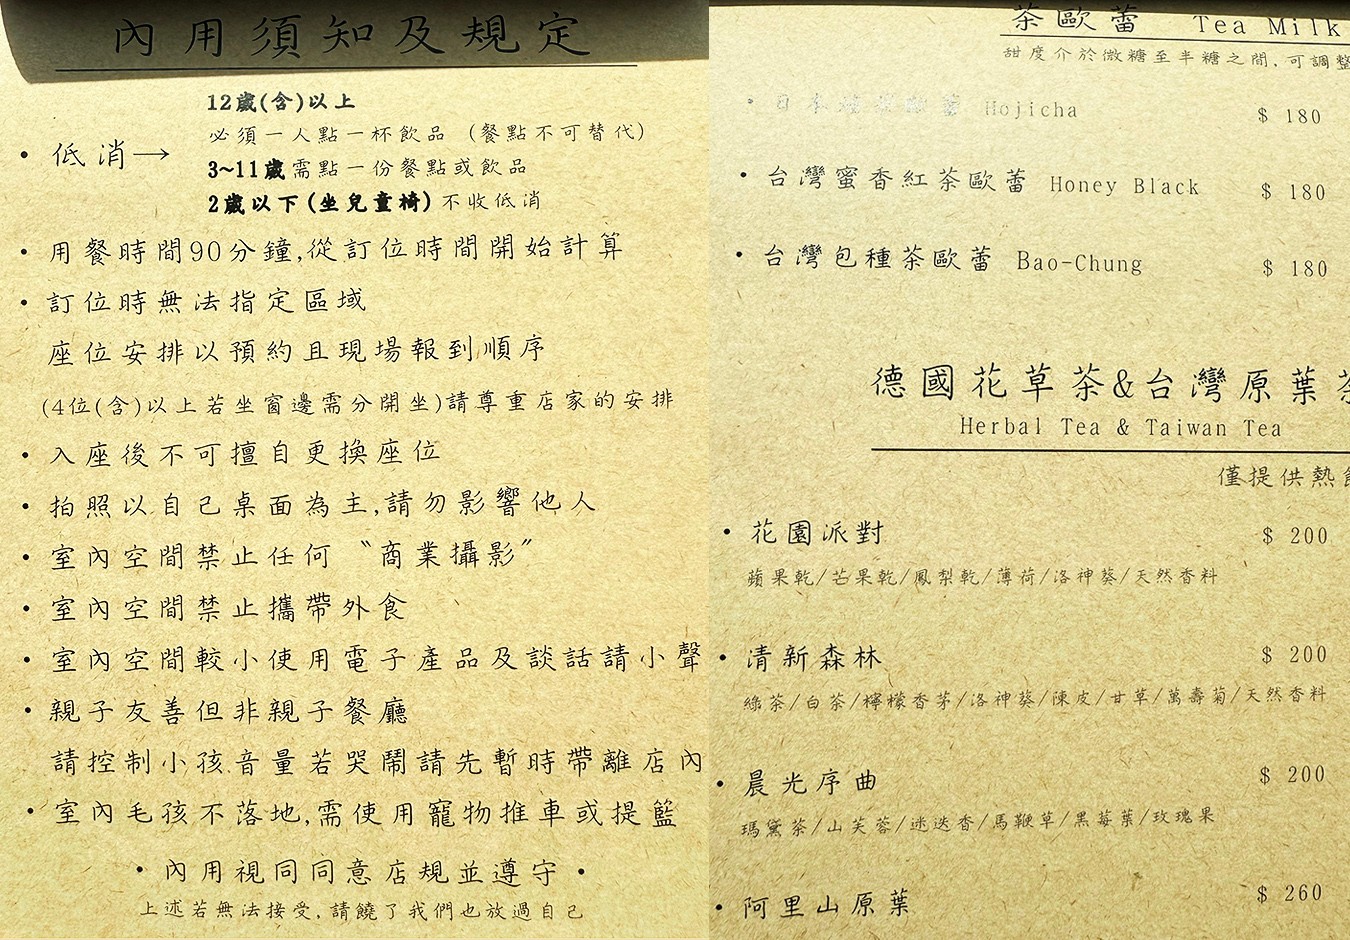 內用須知及規定
12歲(含)以上
必須一人點一杯飲品 (餐點不可替代)
• 低消→
3~11歲需點一份餐點或飲品
2歲以下(坐兒童椅)不收低消
• 用餐時間90分鐘,從訂位時間開始計算
• 訂位時無法指定區域
座位安排以預約且現場報到順序
(4位(含)以上若坐窗邊需分開坐)請尊重店家的安排
• 入座後不可擅自更換座位
• 拍照以自己桌面為主,請勿影響他人
• 室內空間禁止任何〝商業攝影〞
• 室內空間禁止攜帶外食
• 室內空間較小使用電子產品及談話請小聲
• 親子友善但非親子餐廳
請控制小孩音量若哭鬧請先暫時帶離店內
• 室內毛孩不落地,需使用寵物推車或提籃
• 內用視同同意店規並遵守 •
上述若無法接受,請饒了我們也放過自己
茶歐蕾 Tea Milk
甜度介於微糖至半糖之間,可調整
• 日本 Hojicha $ 180
• 台灣蜜香紅茶歐蕾 Honey Black $ 180
• 台灣包種茶歐蕾 Bao-Chung $ 180
德國花草茶&台灣原葉茶
Herbal Tea & Taiwan Tea
僅提供熱飲
• 花園派對 $ 200
蘋果乾/芒果乾/鳳梨乾/薄荷/洛神葵/天然香料
• 清新森林 $ 200
綠茶/白茶/檸檬香茅/洛神葵/陳皮/甘草/萬壽菊/天然香料
• 晨光序曲 $ 200
瑪黛茶/山芙蓉/迷迭香/馬鞭草/黑莓葉/玫瑰果
• 阿里山原葉 $ 260